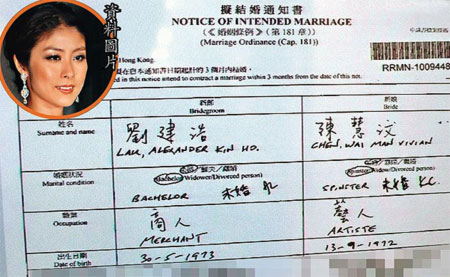 資料圖片
擬結婚通知書
NOTICE OF INTENDED MARRIAGE
(《婚姻條例》(第181章))
(Marriage Ordinance (Cap. 181))
Hong Kong.
通知書日期起計的3個月內結婚。
in this notice intend to contract a marriage within 3 months from the date of this not.
RRMN-1009448
新郎
Bridegroom
新娘
Bride
姓名
Surname and name
劉建浩
LAU, ALEXANDER KIN HO.
陳慧汶
CHEN, WAI MAN VIVIAN
婚姻狀況
Marital condition
(Bachelor/Widower/Divorced person)
BACHELOR 未婚
(Spinster/Widow/Divorced person)
SPINSTER 未婚
職業
Occupation
商人
MERCHANT
藝人
ARTISTE
出生日期
Date of birth
30-5-1973
13-9-1972